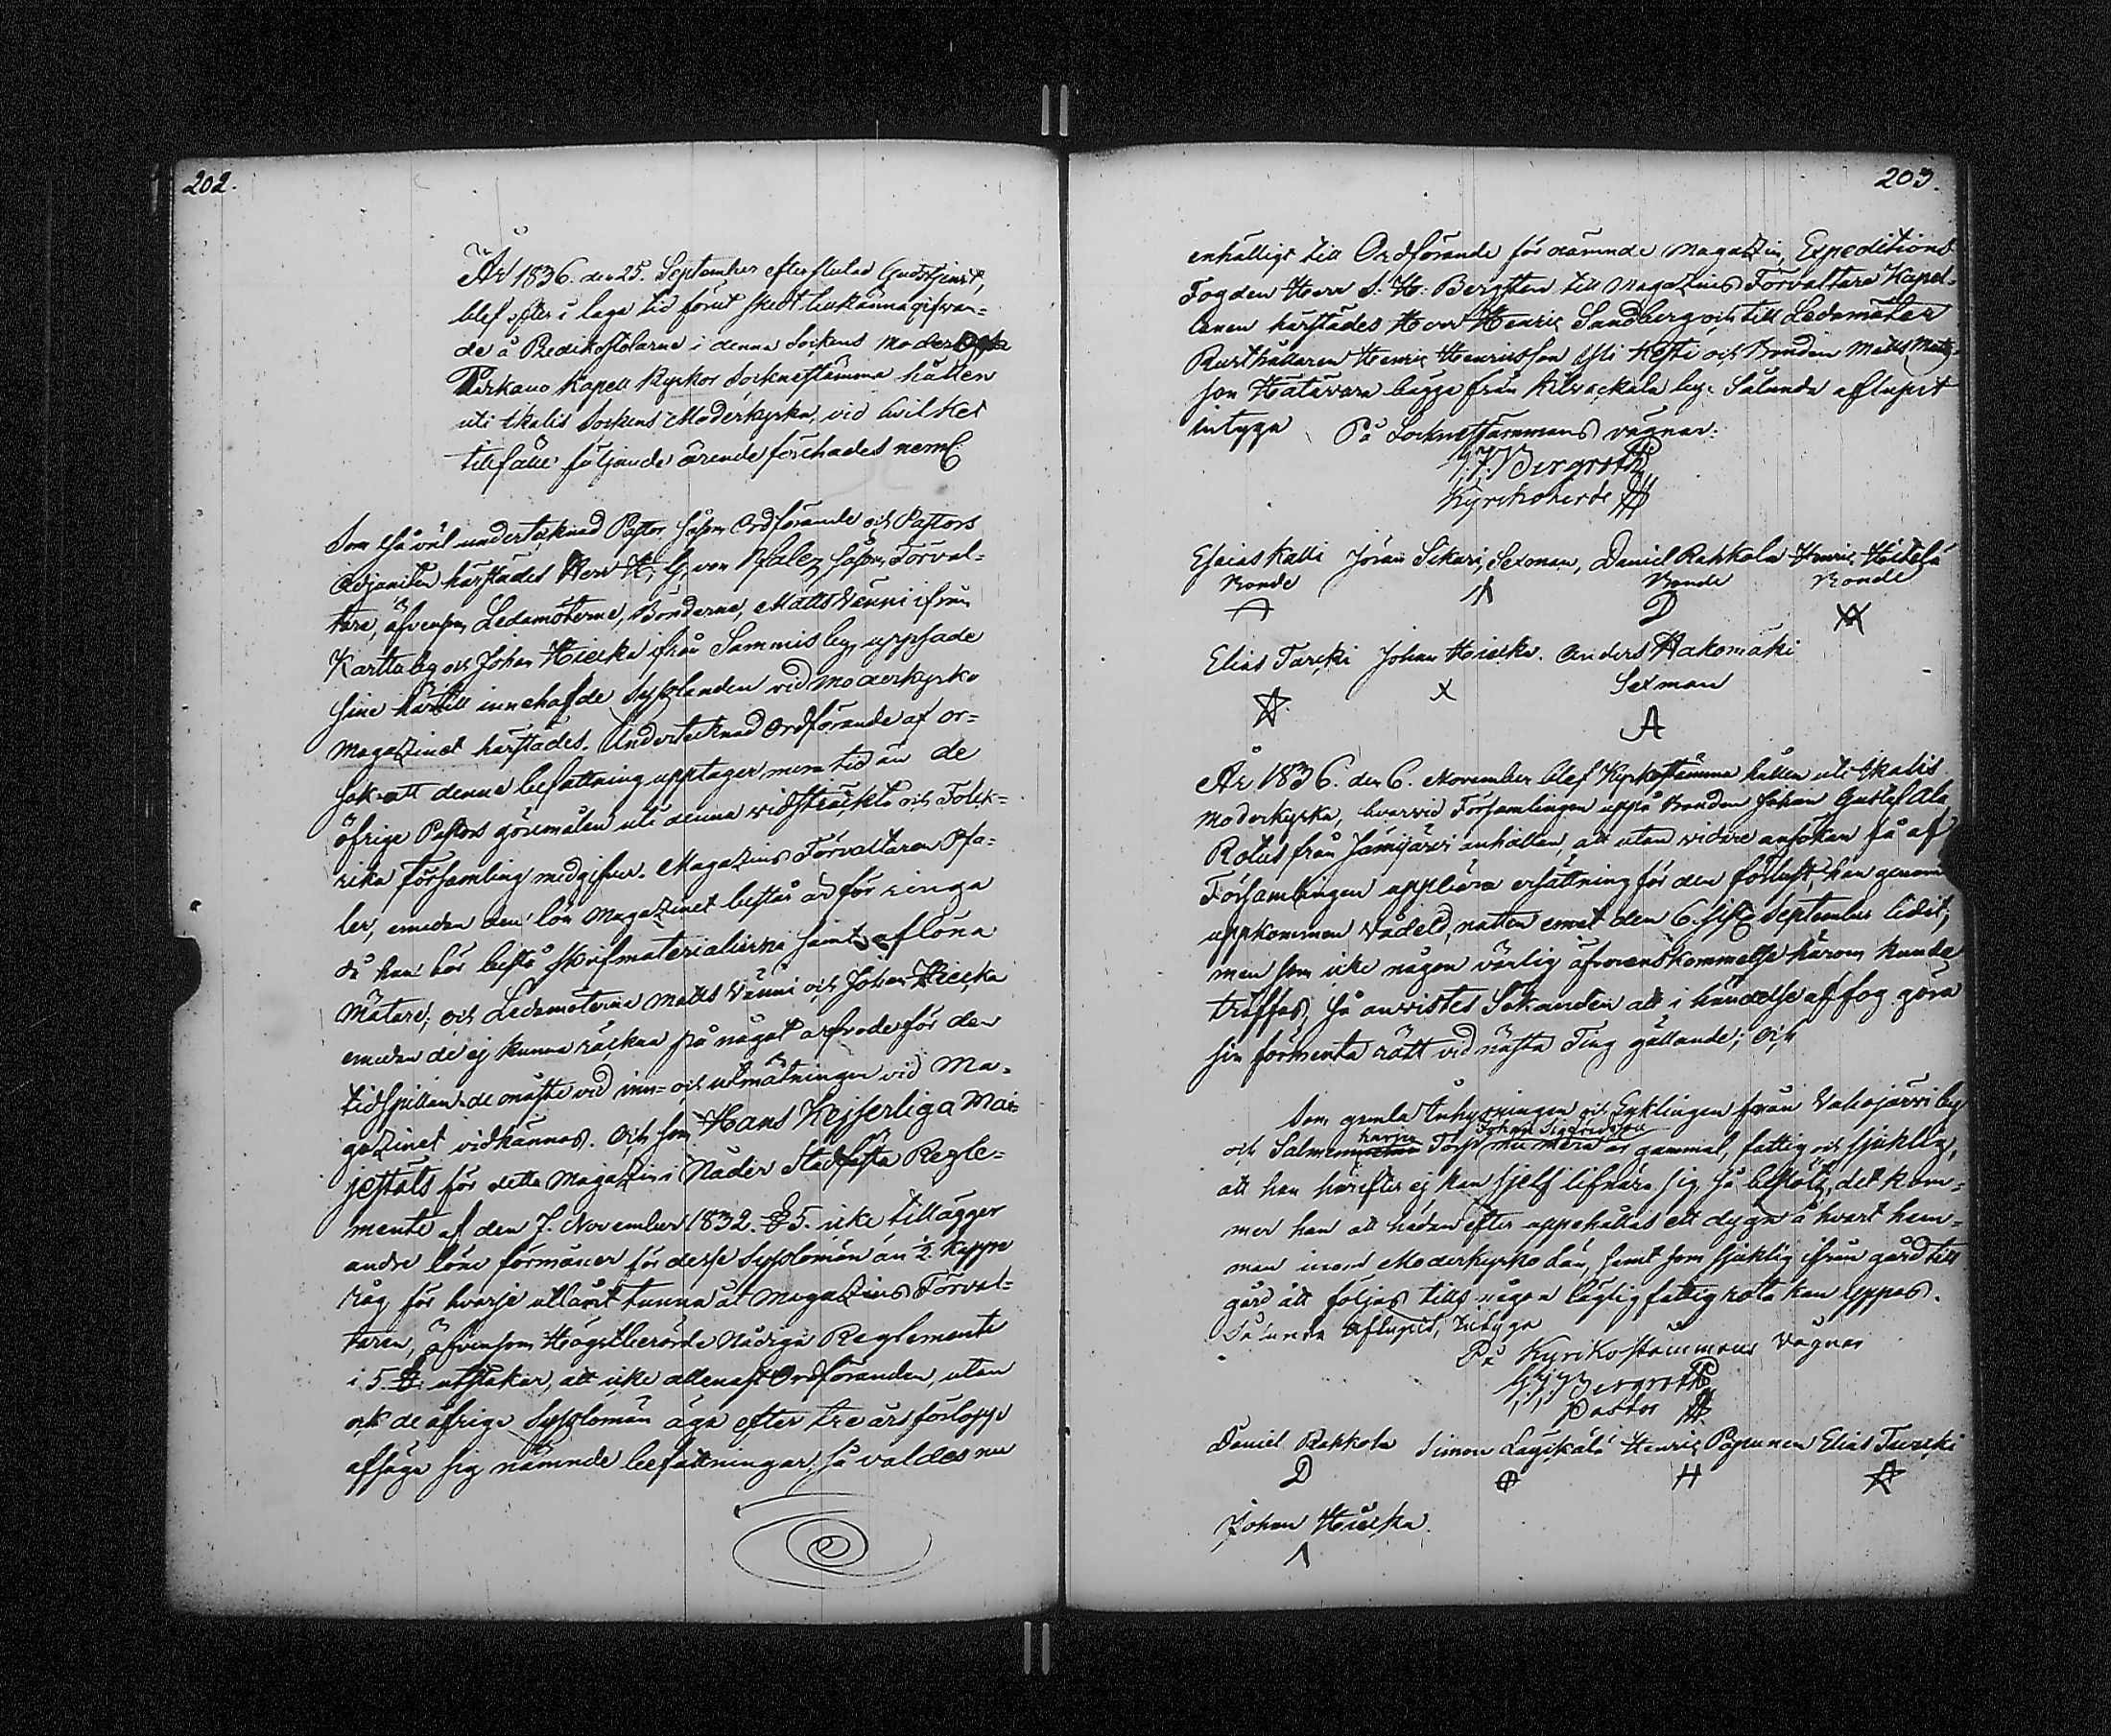 202.
År 1836. den 25. September efter slutad Gudstjenst,
blef efter i laga tid förut skedt tilkännagifvan-
de å Predikostolarne i denna Sockens Moder
Parkano Kapell Kyrkor Socknestämma hållen
uti Ikalis Sockens Moderkyrka, vid hvilket
tillfälle följande ärende förehades neml
Som så väl undertecknad Pastor såsom Ordförande och Pastors
Adjuncten härstädes Herr H. G. von Pfaler såsom Förval-
tare, äfvensom Ledamöterne, Bönderne, Matts Vänni ifrån
Karttu by och Johan Hiecka ifrån Sammis by, uppsade
sine härtill innehafde Sysslanden vid Moderkyrko
Magazinet härstädes. Undertecknad Ordförande af or-
sak att denne befattning upptager mera tid än de
öfrige Pastors göromålen uti denna vidsträckta och Folck-
rika Församling medgifva. Magazins Förvaltaren Pfa-
ler, emedan den lön Magazinet består är för ringa
då han bör bestå Skrifmaterialierna samt aflöna
Mätare; och Ledamöterna Matts Vänni och Johan Hiecka
emedan de ej kunna räckna på något arfvode för den
tidspillan de måste vid inn- och utmätningen vid Ma-
gazinet vidkännas. Och som Hans Kejserliga Mai-
jestäts för detta Magazin i Nåder Stadfästa Regle-
mente af den 7. November 1832. § 5. icke tillägger
andre löne förmåner för desse Sysslomän än ½ Kappe
råg för hvarje utlånt tunna åt Magazins Förval-
taren, äfvensom Högstberörde Nådiga Reglemente
i 5. §. utstakar, att icke allenast Ordföranden, utan
ock de öfrige Sysslomän äga efter tre års förlopp
afsäga sig nämnde befattningar, så valdes nu
203.
enhälligt till Ordförande för nämnde Magazin, Expeditions
Fogden Herr S. H. Bergsten till Magazins Förvaltare Kapel-
lanen härstädes Herr Henric Sandberg och till Ledamöter
Rusthållaren Henric Henricsson Kesti och Bonden Matts Matts-
son Hatavara bägge från Kilvackala by. Sålunda aflupit
intyga På Socknestämmans vägnar:
J. J. Bergroth
Kyrckoherde
Esaias Kalli Jöran Sikuri, Sexman, Daniel Rahkola Henric Heitelä
Bonde Bonde Bonde
D
Elias Turcki Johan Hiecka. Anders Hakomäki
Sexman
X
A
År 1836. den 6. November blef Kyrkostämma hållen uti Ikalis
Moderkyrka, hvarvid Församlingen uppå Bonden Johan Gustaf Ala
Rotus från Jämijärvi anhållan, att utan vidare ansökan få af
Församlingen uppbära ersättning för den förlust, han genom
uppkommen Vådeld, natten emot den 6. sistl. September lidit;
men som icke någon vänlig öfverenskommelse härom kunde
träffas, så anvistes Sökanden att i händelse af fog göra
sin förmenta rätt vid nästa Ting gällande; Och
Som gamla Inhysningen och Enklingen från Vahojärvi by
Harju Johan Sigfridsson
och Salmen Torp nu mera är gammal, fattig och sjuklig,
att han härefter ej kan sjelf lifnära sig så beslöts, det kom-
mer han att hädan efter uppehållas ett dygn å hvart hem-
man inom Moderkyrko län, samt som sjuklig ifrån gård till
gård att följas tills någon läglig fattig rota kan yppas.
Sålunda aflupit, Intyga
På Kyrkostämmans vägnar
J. J. Bergroth
Pastor
Daniel Rahkola Simon Läykälä Henric Papunen Elias Turcki
D H
Johan Hiecka.